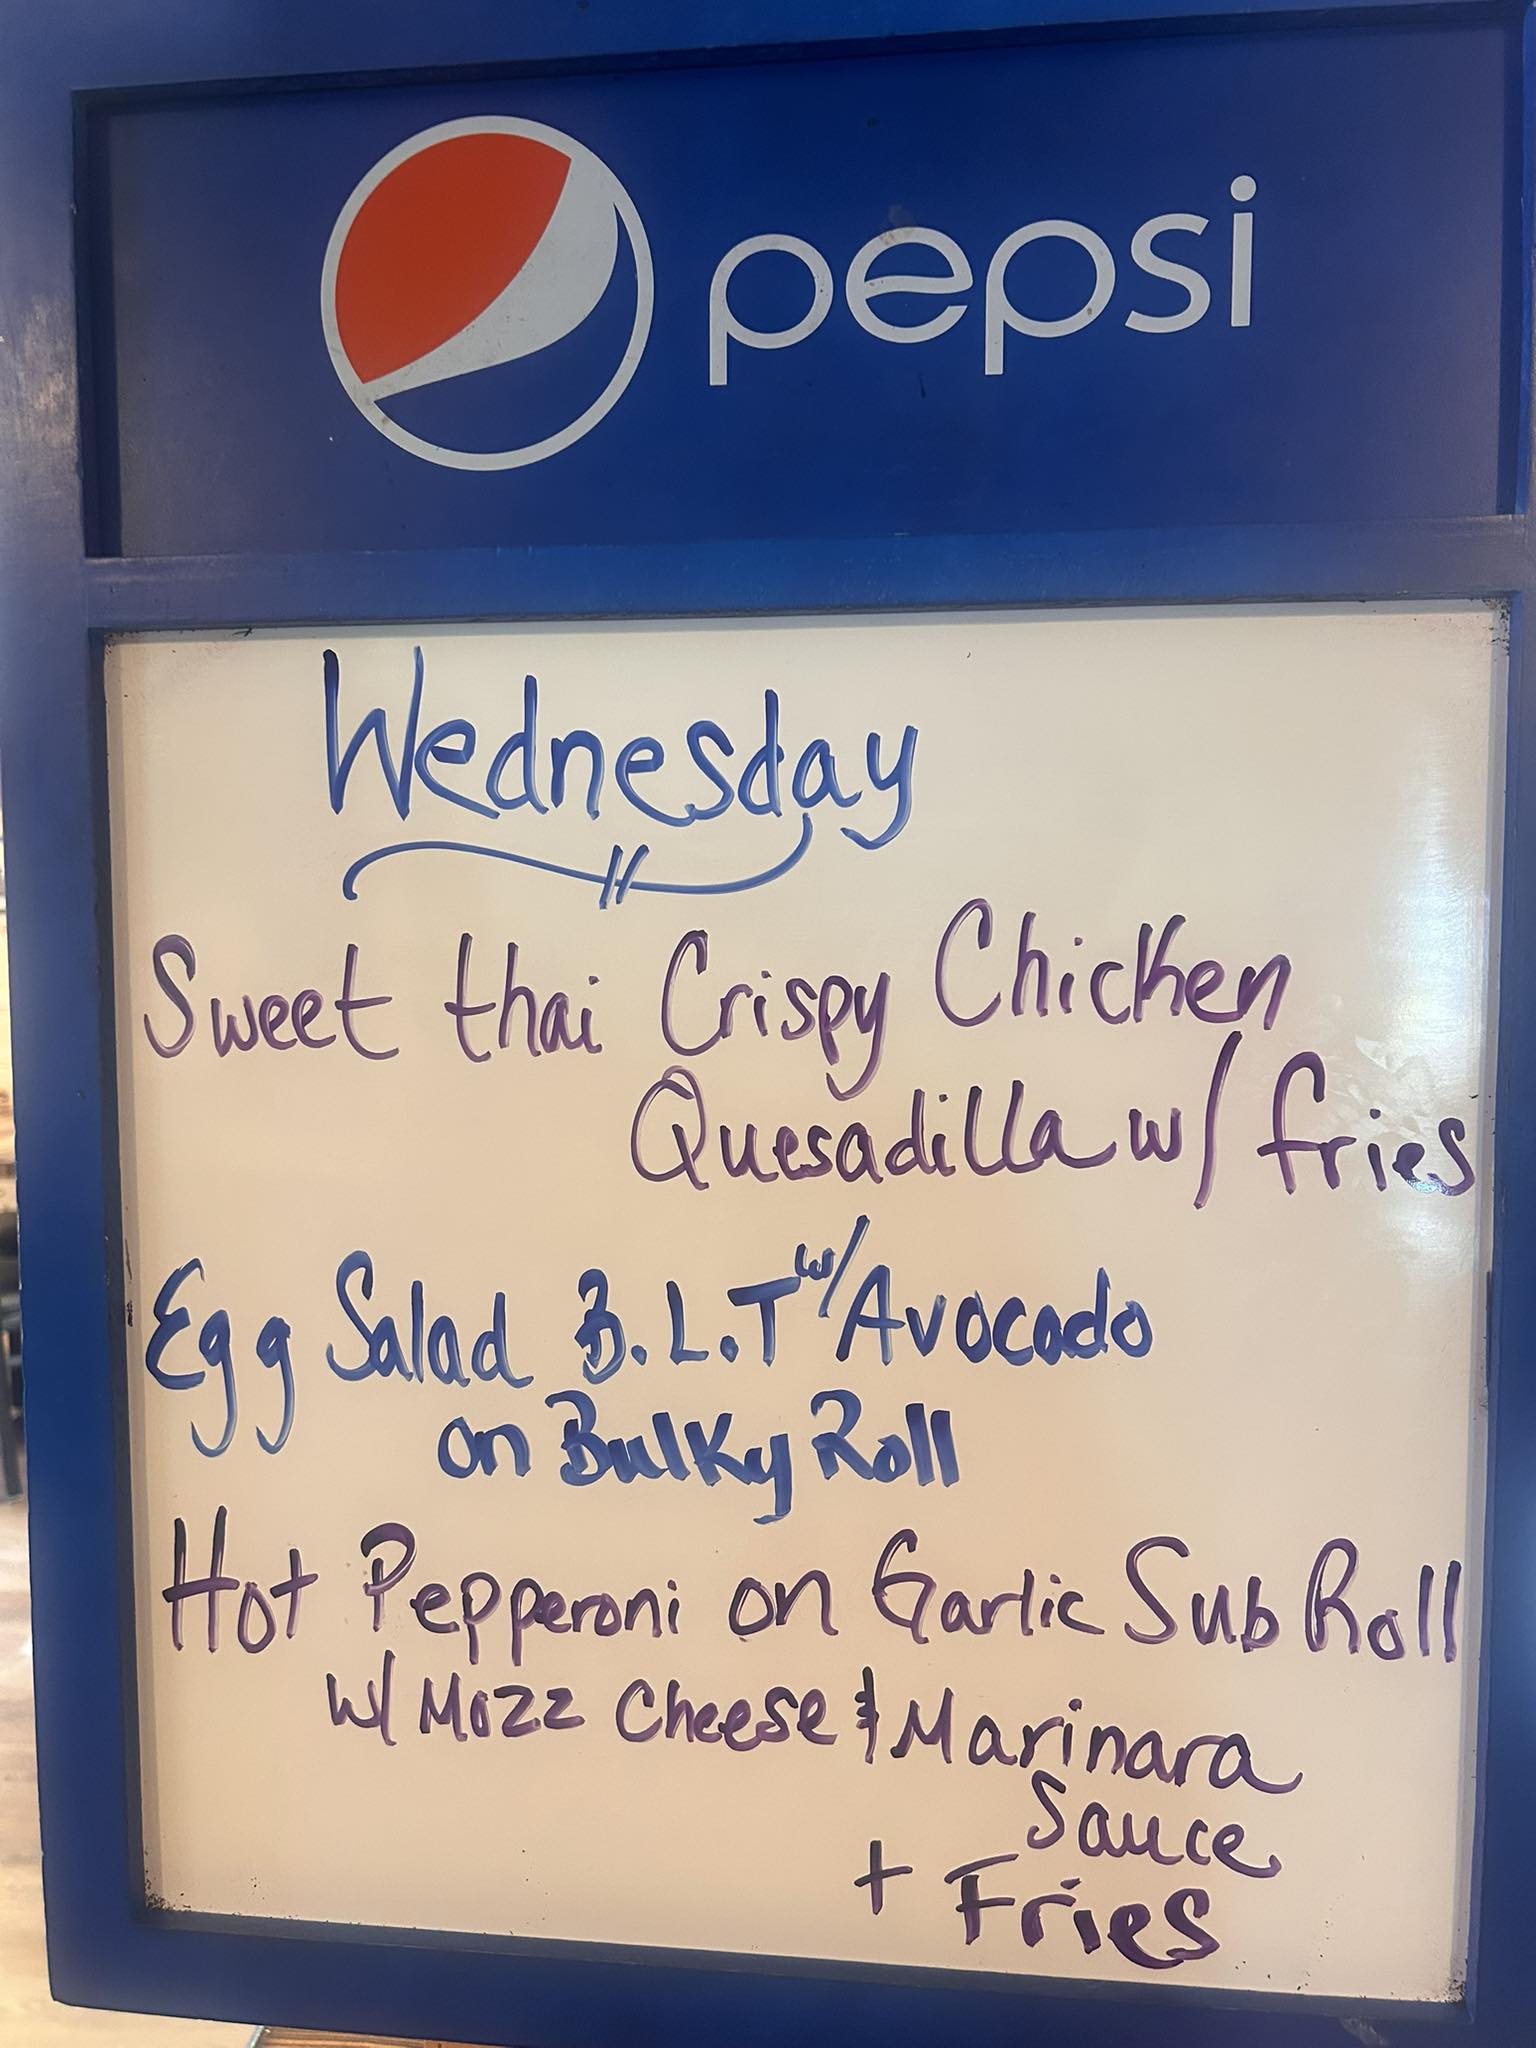 pepsi
Wednesday
Sweet thai Crispy Chicken
Quesadilla w/ fries
Egg Salad B.L.T w/ Avocado
on Bulky Roll
Hot Pepperoni on Garlic Sub Roll
w/ Mozz Cheese & Marinara
Sauce
+ Fries